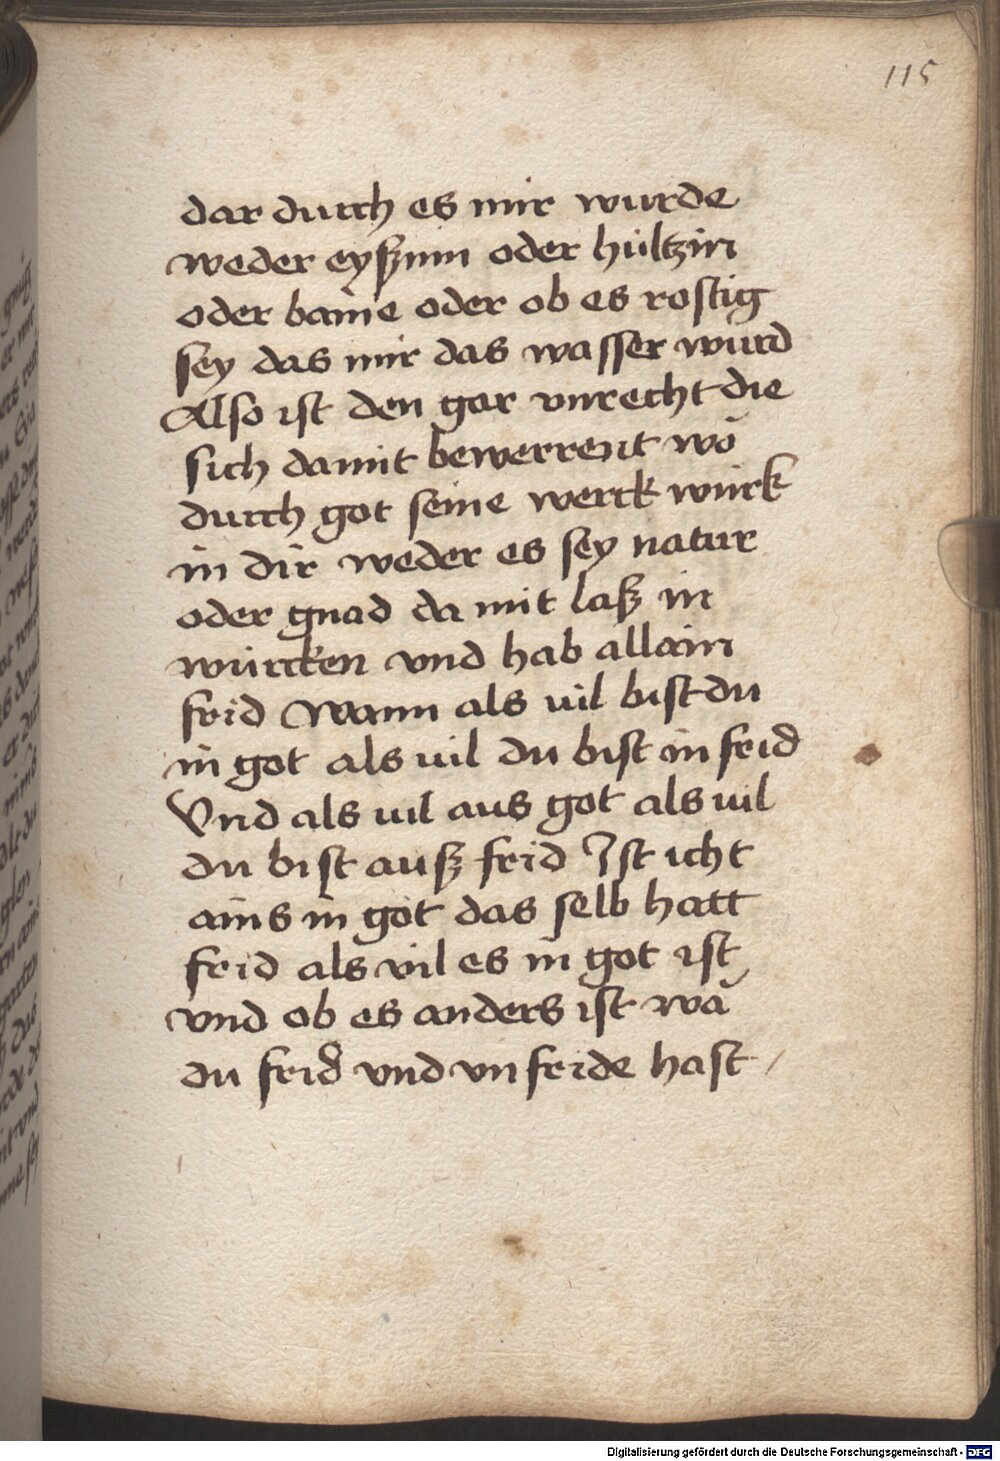 115
dar durch es mir wurde
weder eysznin oder hültzin
oder baine oder ob es rostig
sey das mir das wasser würd
Also ist den gar vnrecht die
sich damit bewerrent wō
durch got seine werck würk
in dir weder es sey natur
oder gnad da mit lasz in
würcken vnd hab allain
frid Wann als uil bist du
in got als uil du bist in frid
Vnd als uil aus got als uil
du bist ausz frid Ist icht
ains in got das selb hatt
frid als vil es in got ist
vnd ob es anders ist wā
du frid vnd vnfride hast /
Digitalisierung gefördert durch die Deutsche Forschungsgemeinschaft - DFG